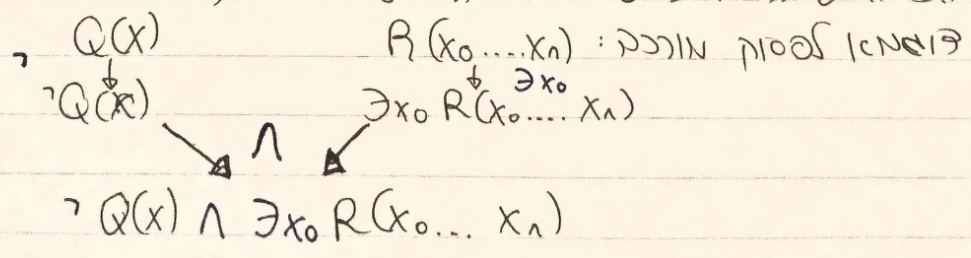 דוגמא לפסוק מורכב: R(x₀....xₙ)    Q(x)
¬    ↓    ↓ ∃x₀
¬Q(x)    ∃x₀ R(x₀.... xₙ)
∧
¬Q(x) ∧ ∃x₀ R(x₀... xₙ)